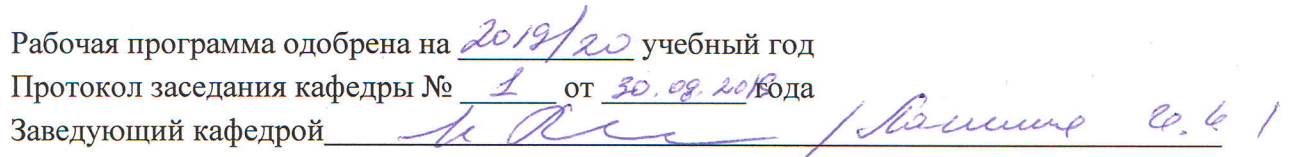 Рабочая программа одобрена на 2019/20 учебный год
Протокол заседания кафедры № 1 от 30.08.2019 года
Заведующий кафедрой